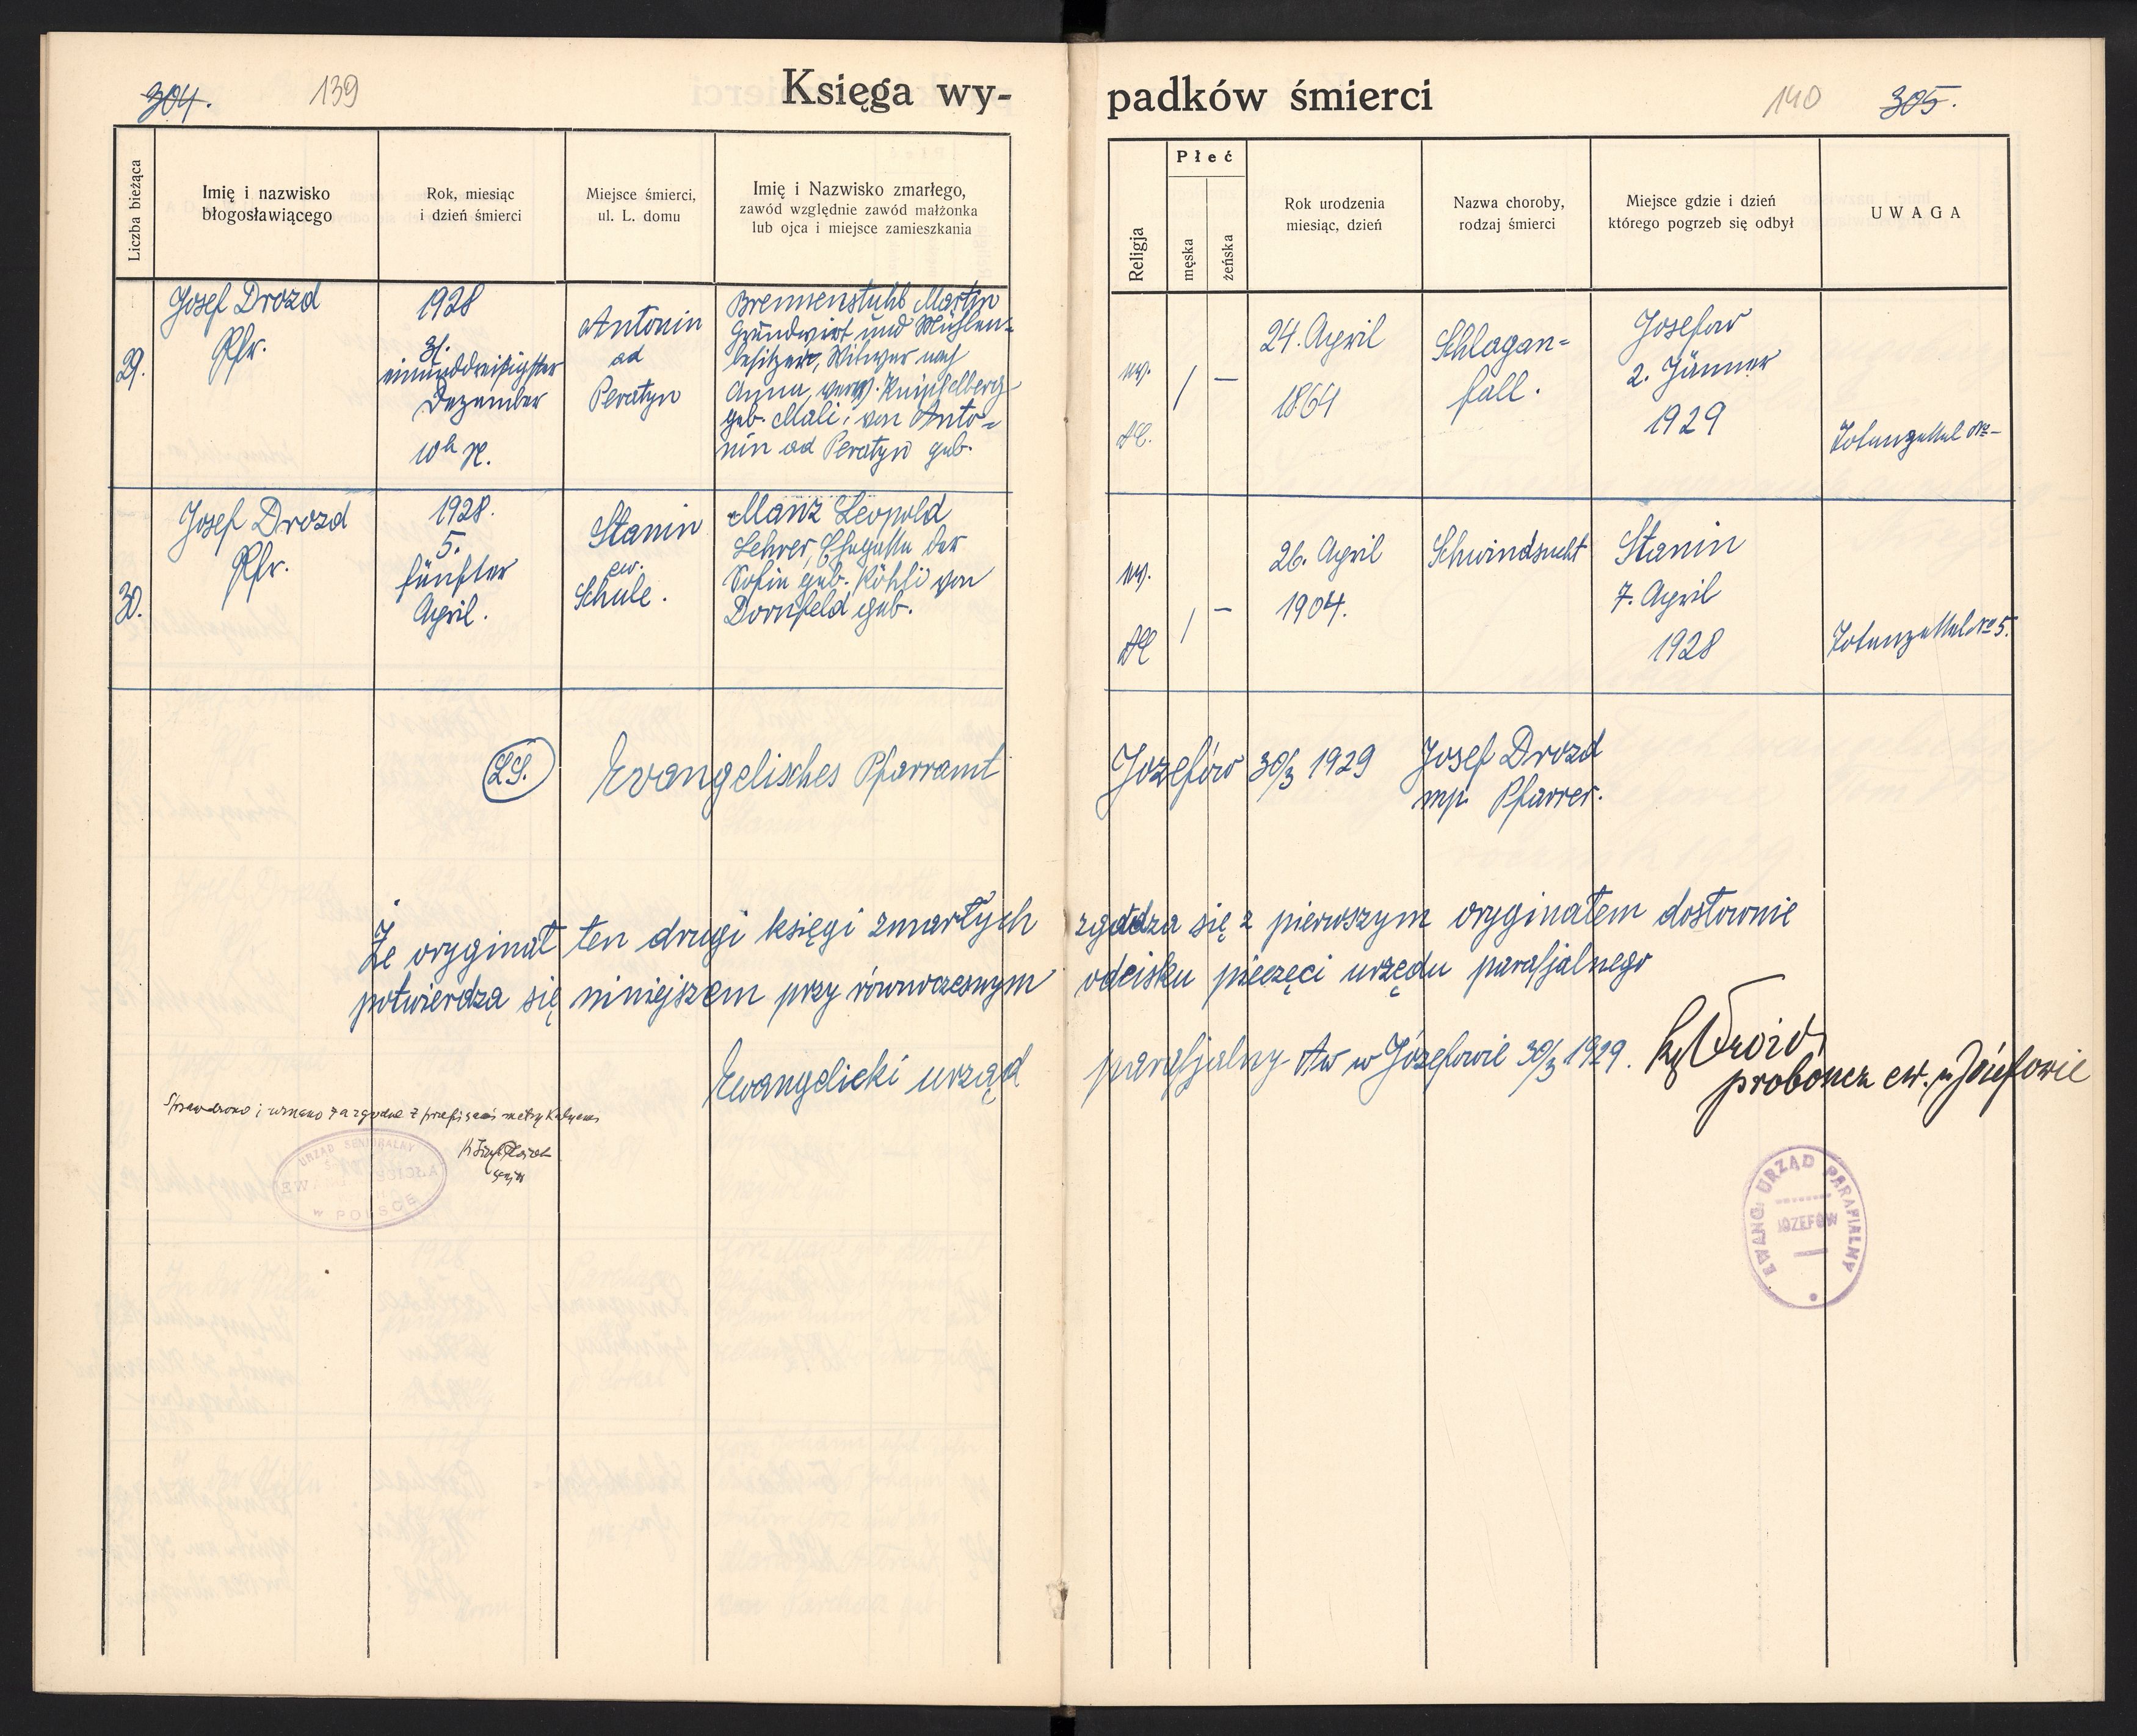 304.
139
Księga wy-
padków śmierci
140
305.
Liczba bieżąca
Imię i nazwisko
błogosławiącego
Rok, miesiąc
i dzień śmierci
Miejsce śmierci,
ul. L. domu
Imię i Nazwisko zmarłego,
zawód względnie zawód małżonka
lub ojca i miejsce zamieszkania
Religja
Płeć
męska
żeńska
Rok urodzenia
miesiąc, dzień
Nazwa choroby,
rodzaj śmierci
Miejsce gdzie i dzień
którego pogrzeb się odbył
UWAGA
29.
Josef Drozd
Pfr.
1928
31.
einunddreißigster
Dezember
10h
Antonin
ad
Peratyn
Brennenstuhl Martin
Grundwirt und Mühlen-
besitzer, Witwer nach
Anna, verw.
geb. Mali; von Anto-
nin ad Peratyn geb.
ev.
AC.
/
—
24. April
1864
Schlagan-
fall.
Josefow
2. Jänner
1929
Totenzettel No —
30.
Josef Drozd
Pfr.
1928.
5.
fünfter
April.
Stanin
ev.
Schule.
Manz Leopold
Lehrer, Ehegatte der
Sofie geb. Köhli von
Dornfeld geb.
ev.
AC
/
—
26. April
1904.
Schwindsucht
Stanin
7. April
1928
Totenzettel No 5.
LS.
Evangelisches Pfarramt
Jozefów 30/3 1929
Josef Drozd
mp. Pfarrer.
Że oryginał ten drugi księgi zmarłych zgadza się z pierwszym oryginałem dosłownie
potwierdza się niniejszem przy równoczesnym odcisku pieczęci urzędu parafjalnego
Ewangelicki urząd parafjalny Aw w Józefowie 30/3 1929. Ks Drozd
proboszcz ew. w Józefowie
Sprawdzono i uznano za zgodne z przepisami metrykalnemi
senjor
URZĄD SENIORALNY
w POLSCE
EWANG. URZĄD PARAFIALNY
JÓZEFÓW